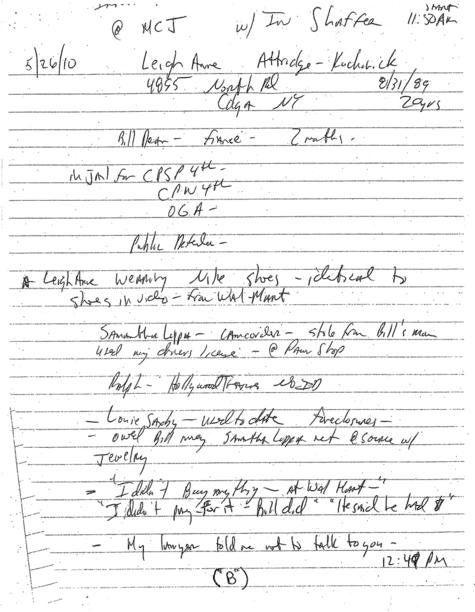 @ MCJ w/ Inv Shaffer
11:50 AM
5/26/10 Leigh Anne Attridge - Kuchinick
4855 North Rd 8/31/89
NY 20yrs
Bill - fiance - 2 months.
in Jail for CPSP 4th
CPW 4th
OGA -
Public Defender -
Leigh Anne wearing Nike shoes - identical to
shoes in video - from Wal-Mart
Samantha - camcorder - stole from Bill's mom
used my drivers license - @ Pawn Shop
Ralph - Hollywood
- Louie - used to date foreclosures -
- owed Bill money Samantha met @ w/
Jewelry
- "I didn't Buy anything - at Wal Mart -"
"I didn't pay for it - Bill did" "He said he had $"
- My lawyer told me not to talk to you -
PM
("B")